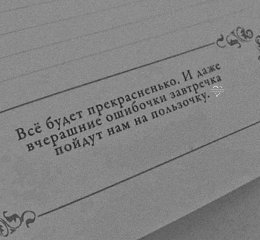 Всё будет прекрасненько. И даже
вчерашние ошибочки завтречка
пойдут нам на пользочку.